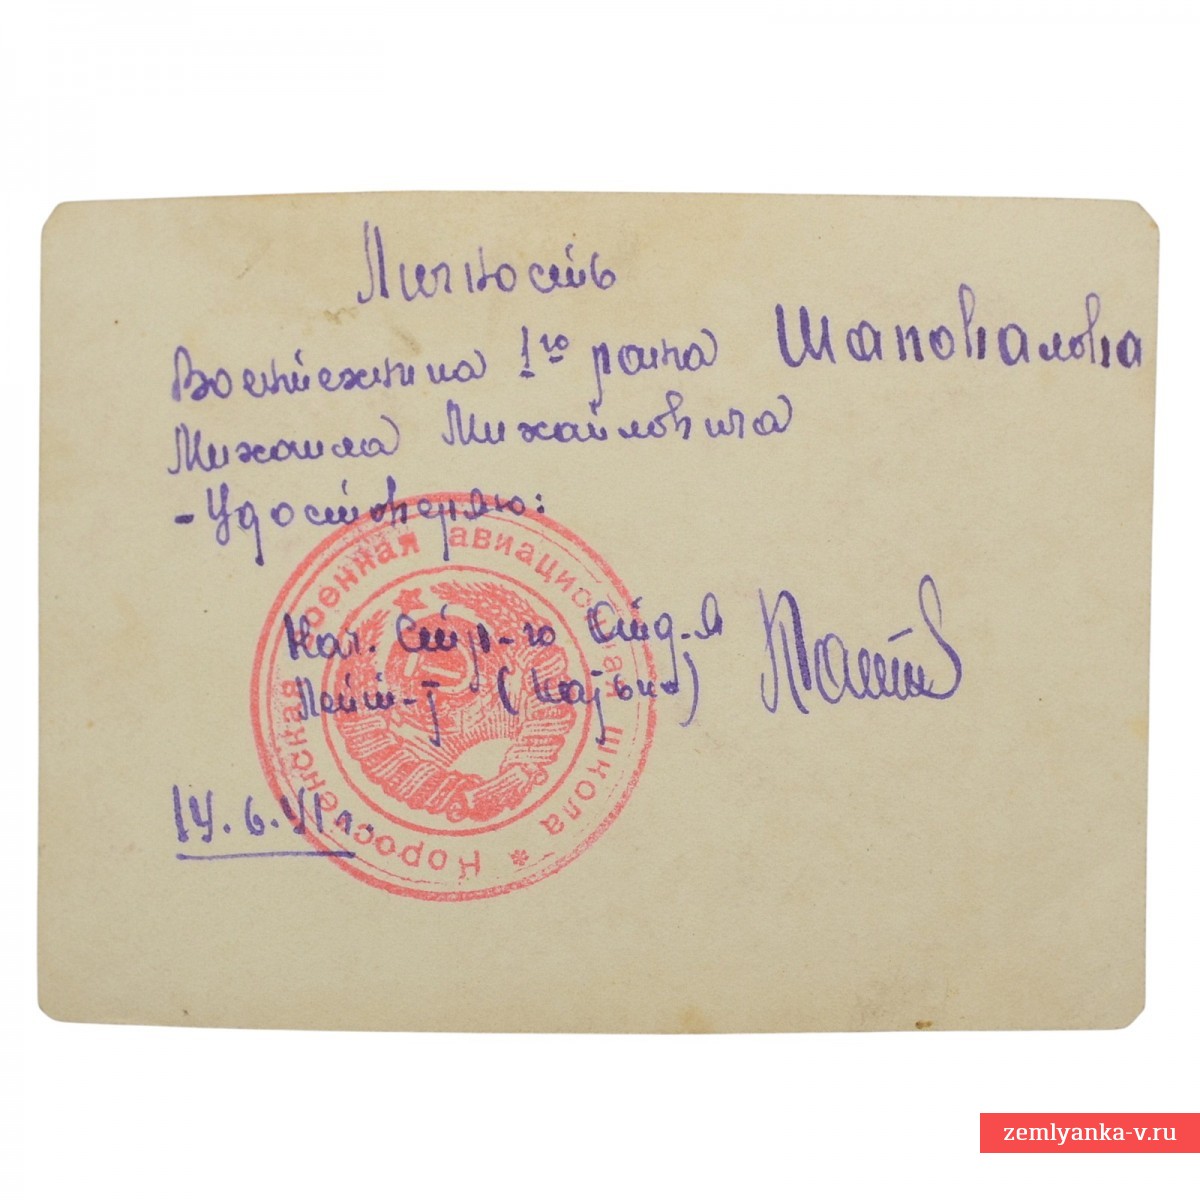 Личность
Воентехника 1го ранга Шаповалова
Михаила Михайловича
- Удостоверяю:
Нач. Стр-го Отд-я
Лейт-т
14.6.41 г.
Коросте́нская военная авиационная школа *
zemlyanka-v.ru